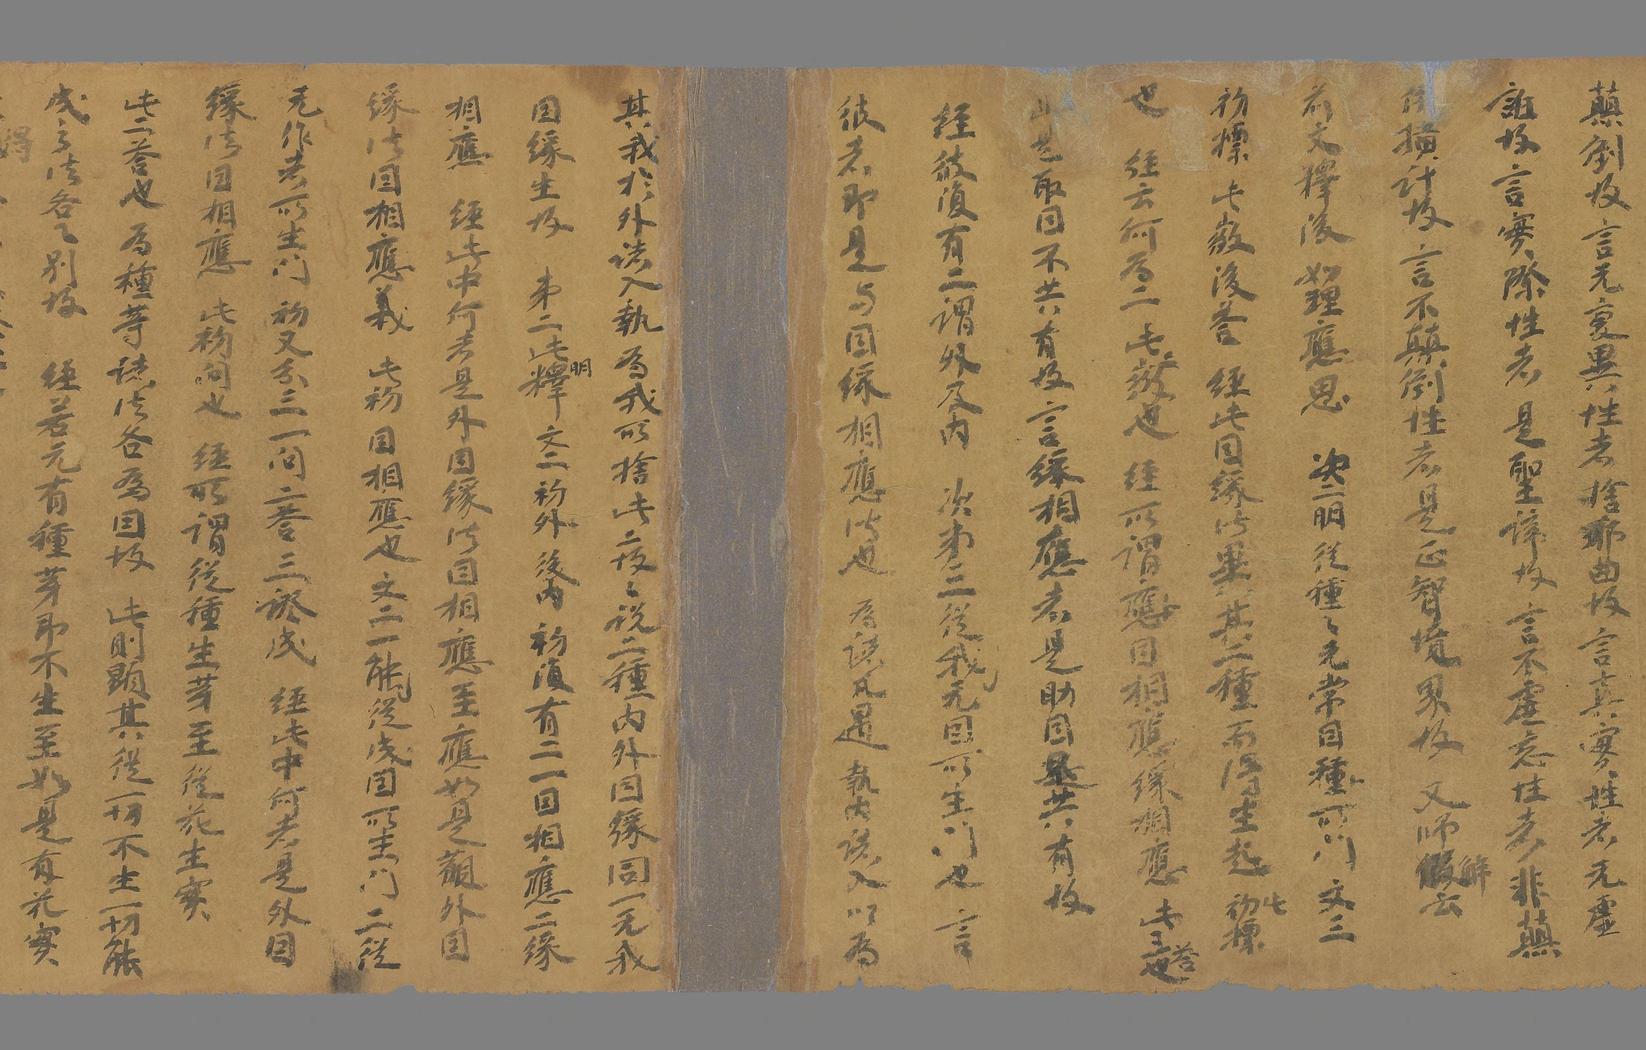 顛倒故言无變異性者捨耶曲故言真實性者无虛
誑故言實際性者是聖諦故言不虛妄性者非顛
倒撗計故言不顛倒性者是正智境界故又師解云
前文釋後如理應思次二明從種種无常因種可門文三
初標此啟後荅經此因緣法果其二種而得生起此初標
也經云何為二此啟也經所謂應因相應緣相應此荅也
此是取因不共有故言緣相應者是助因是共有故
經彼復有二謂外及內次第三從我无因可生門也言
彼者即是与因緣相應法也為談凡愚執內諸入以為
其我於外諸入執為我所捨此二故故說二種內外因緣同一无我
因緣生故第二此明釋文二初外後內初復有二一因相應二緣
相應經此中何者是外因緣法因相應至應如是觀外因
緣法因相應義此初因相應也文二一能從成因所生門二從
无作者所生門初又分三一問二荅三證成經此中何者是外因
緣法因相應此初問也經所謂從種生芽至從花生實
此二荅也為種等諸法各為因故此則顯其從一切不生一切能
成之法各各別故經若无有種芽即不生至如是有花實